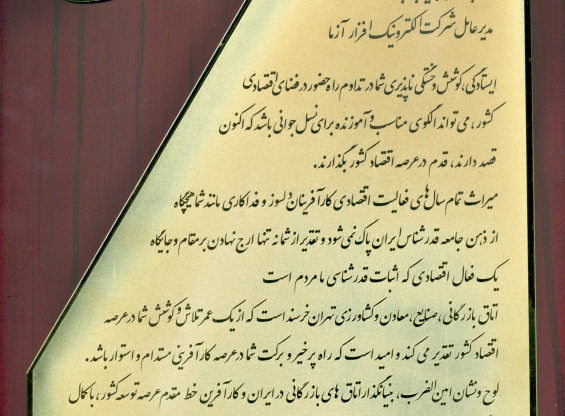 مدیرعامل شرکت الکترونیک افزار آزما
ایستادگی، کوشش و خستگی ناپذیری شما در تداوم راه حضور در فضای اقتصادی
کشور، می تواند الگوی مناسب و آموزنده برای نسل جوانی باشد که اکنون
قصد دارند، قدم در عرصه اقتصاد کشور بگذارند.
میراث تمام سال های فعالیت اقتصادی کارآفرینان دلسوز و فداکاری مانند شما هیچگاه
از ذهن جامعه قدرشناس ایران پاک نمی شود و تقدیر از شما نه تنها ارج نهادن بر مقام و جایگاه
یک فعال اقتصادی که اثبات قدرشناسی ما مردم است
اتاق بازرگانی، صنایع، معادن و کشاورزی تهران خرسند است که از یک عمر تلاش و کوشش شما در عرصه
اقتصاد کشور تقدیر می کند و امید است که راه پر خیر و برکت شما در عرصه کارآفرینی مستدام و استوار باشد.
لوح و نشان امین الضرب، بنیانگذار اتاق های بازرگانی در ایران و کارآفرین خط مقدم عرصه توسعه کشور، با کمال